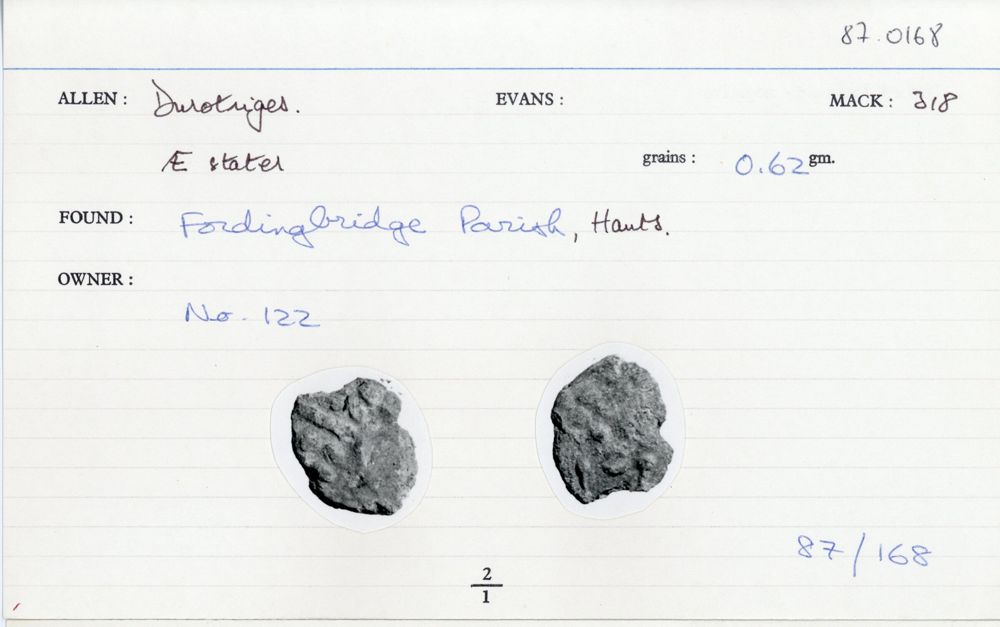 87.0168
ALLEN : Durotriges. EVANS : MACK : 318
Æ stater grains : 0.62 gm.
FOUND : Fordingbridge Parish, Hants.
OWNER :
No. 122
87/168
2
1